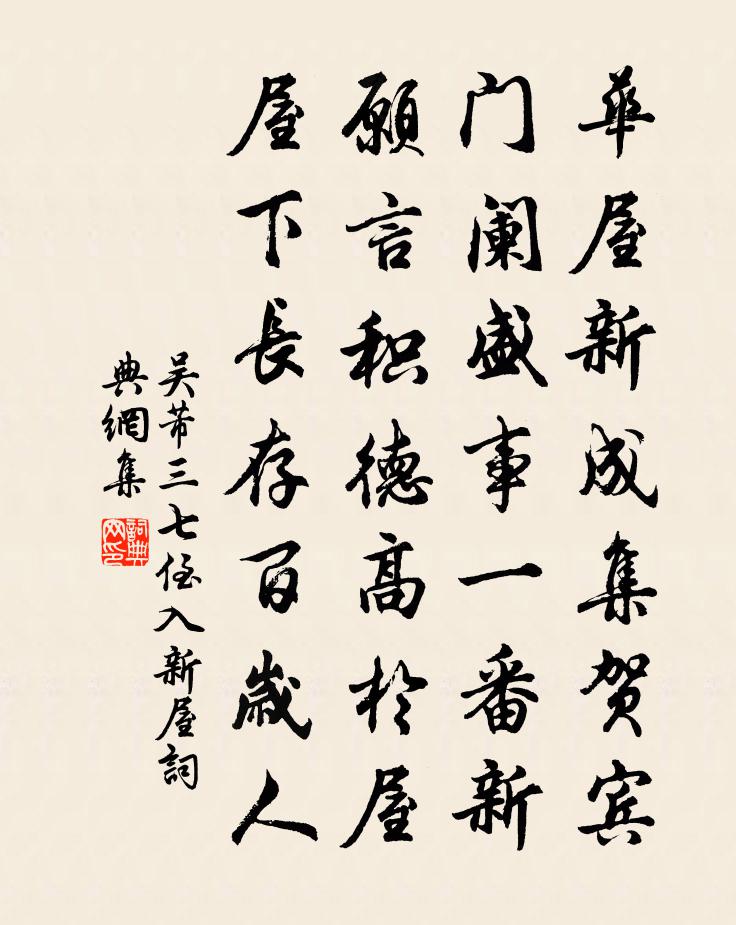 華屋新成集贺宾
门阑盛事一番新
願言积德高於屋
屋下長存百歲人
吴芾三七侄入新屋詞
典網集
詞典
网印